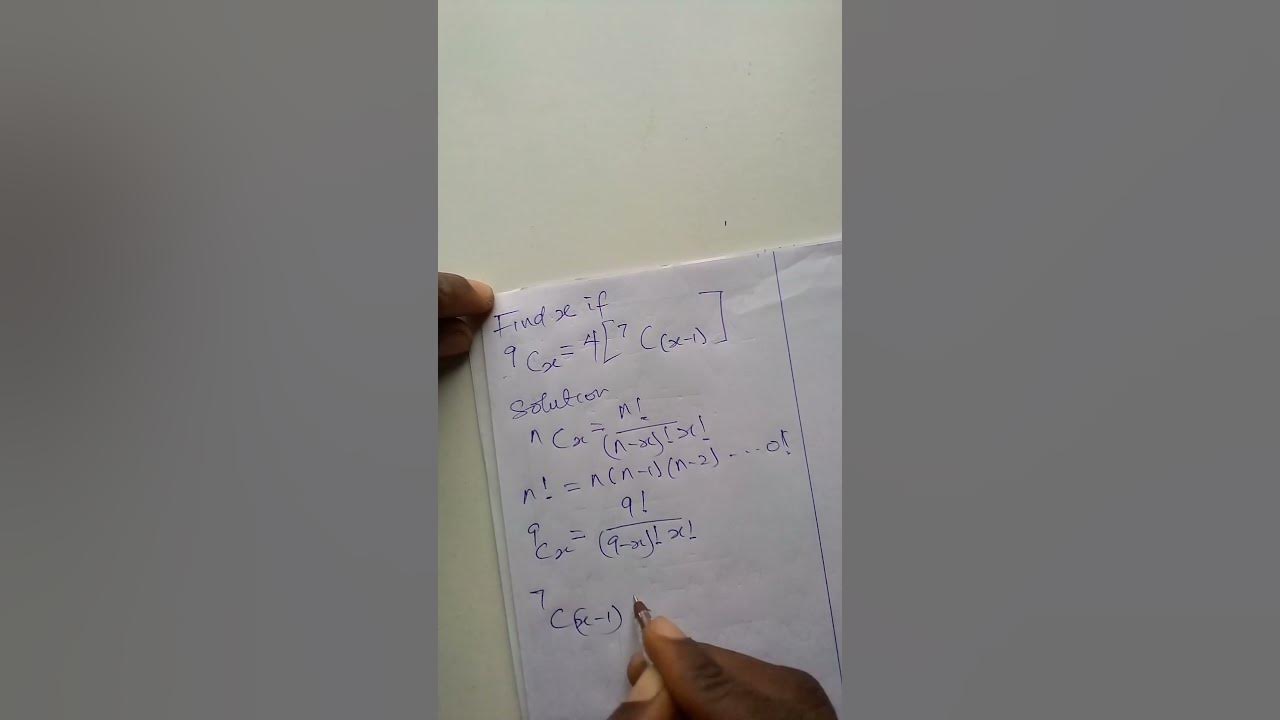 Find x if
⁹Cₓ = 4[⁷C(x-1)]
Solution
ⁿCₓ = n!/(n-x)!x!
n! = n(n-1)(n-2) ---- 0!
⁹Cₓ = 9!/(9-x)!x!
⁷C(x-1)